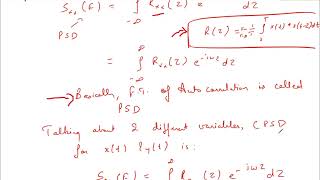 S_xx(f) = ∫_-∞^∞ R_xx(z) e dz
R(z) = 1/T ∫ x(t) * x(t-z) dt
= ∫_-∞^∞ R_xx(z) e^-iωz dz
Basically, F.T. of Autocorrelation is called
PSD
Talking about 2 different variables, CPSD
for x(t) & y(t) is:
∫^∞ e^-iωz dz